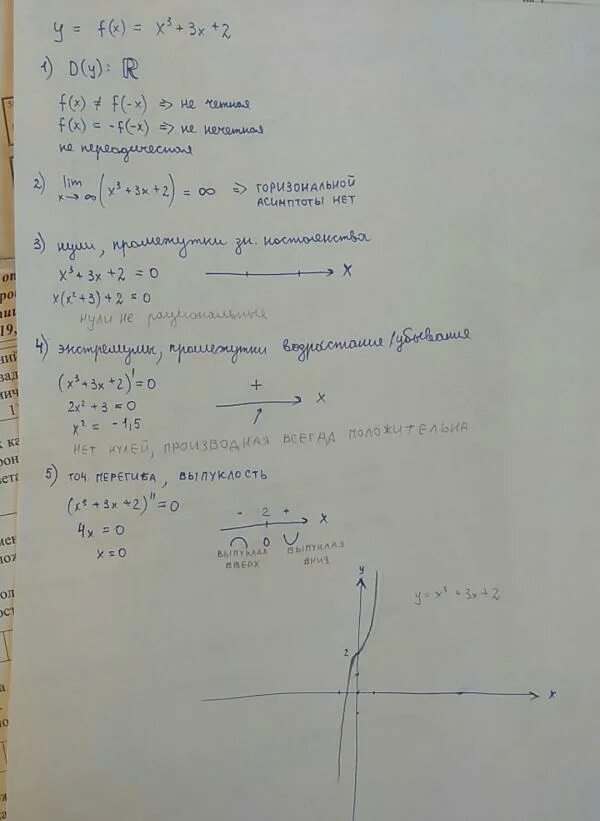 y = f(x) = x³ + 3x + 2
1) D(y): ℝ
f(x) ≠ f(-x) => не четная
f(x) = -f(-x) => не нечетная
не переодическая
2) lim x→∞ (x³ + 3x + 2) = ∞ => ГОРИЗОНАЛЬНОЙ АСИМПТОТЫ НЕТ
3) нули, промежутки зн. постоянства
x³ + 3x + 2 = 0
x
x(x² + 3) + 2 = 0
нули не рациональные
4) экстремумы, промежутки возрастания/убывания
(x³ + 3x + 2)' = 0
+
x
2x² + 3 = 0
x² = -1,5
НЕТ НУЛЕЙ, ПРОИЗВОДНАЯ ВСЕГДА ПОЛОЖИТЕЛЬНА
5) ТОЧ. ПЕРЕГИБА, ВЫПУКЛОСТЬ
(x³ + 3x + 2)'' = 0
- 2 +
x
4x = 0
0
x = 0
ВЫПУКЛАЯ ВВЕРХ
ВЫПУКЛАЯ ВНИЗ
y
y = x³ + 3x + 2
2
x